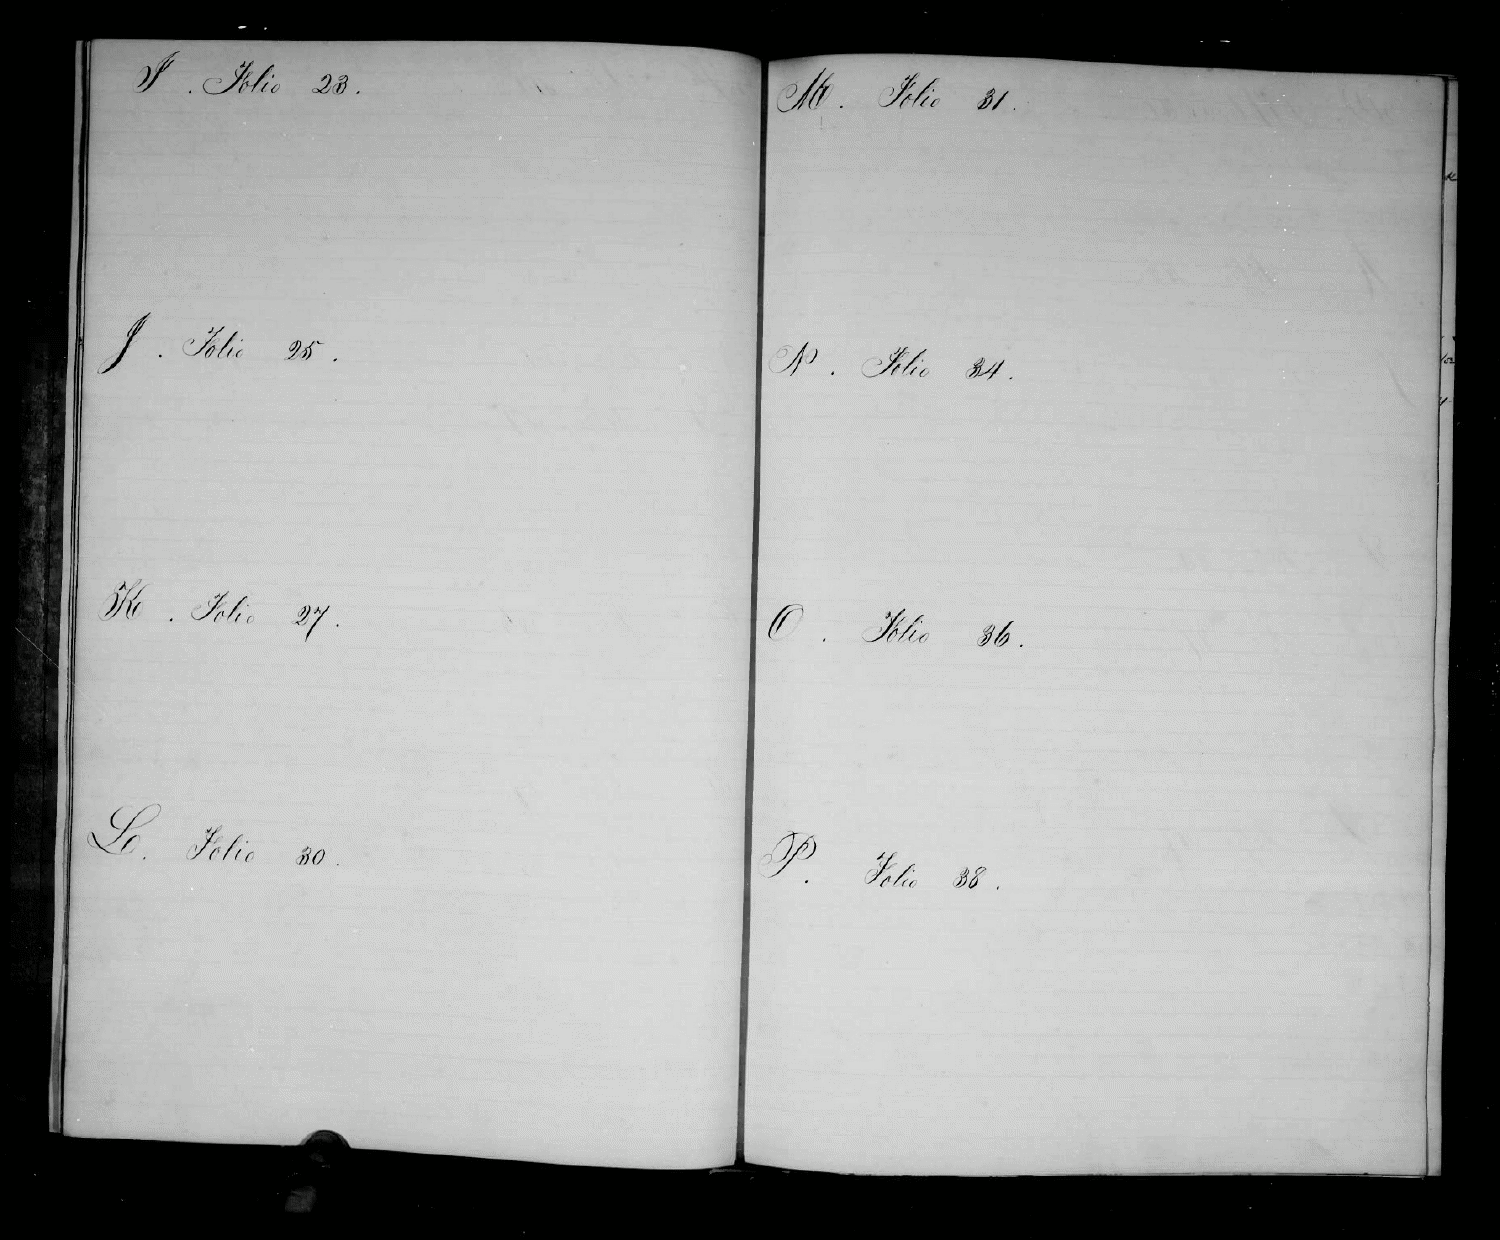 I. Folio 23.
J. Folio 25.
K. Folio 27.
L. Folio 30.
M. Folio 31.
N. Folio 34.
O. Folio 36.
P. Folio 38.